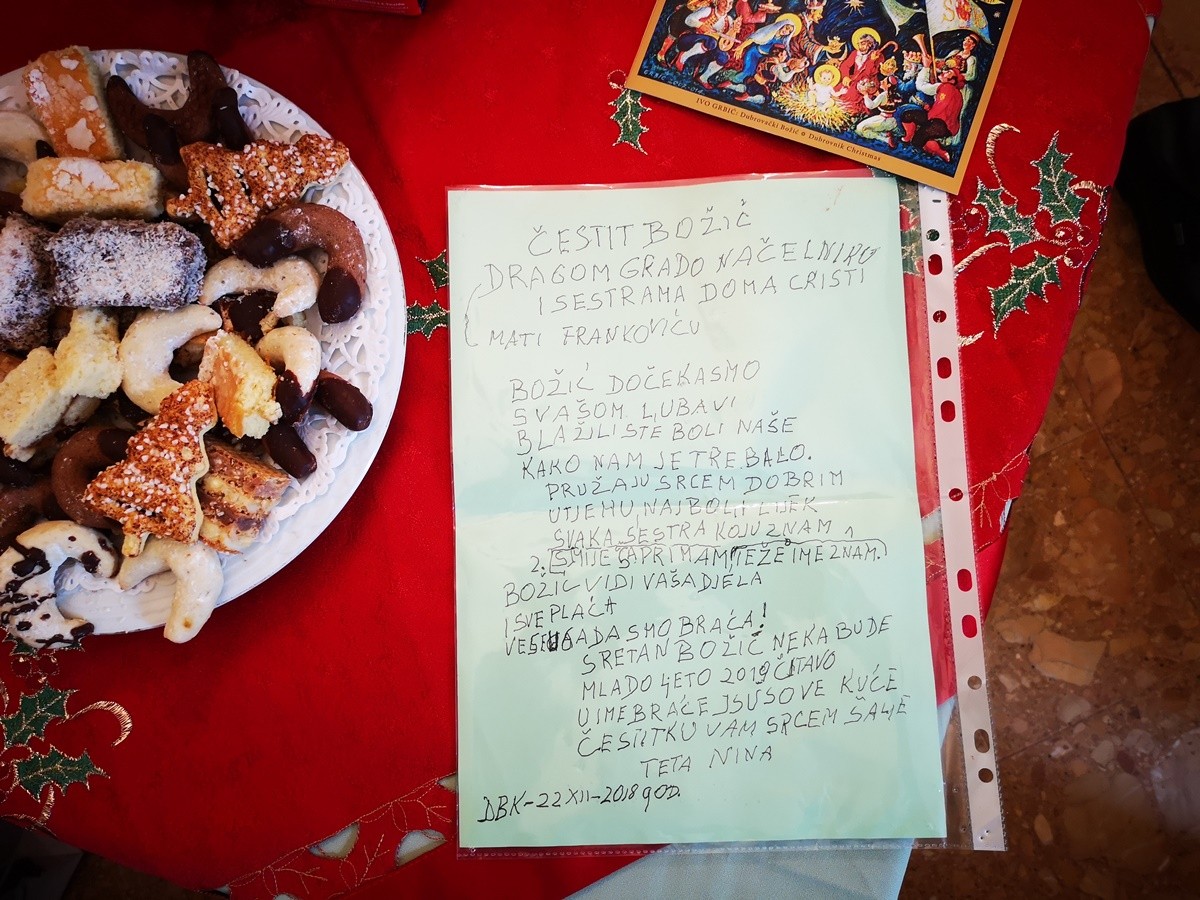 IVO GRBIĆ: Dubrovački Božić ✿ Dubrovnik Christmas
ČESTIT BOŽIĆ
DRAGOM GRADO NAČELNIKO
I SESTRAMA DOMA CRISTI
MATI FRANKOVIĆU
BOŽIĆ DOČEKASMO
S VAŠOM LJUBAVI
BLAŽILI STE BOLI NAŠE
KAKO NAM JE TREBALO.
PRUŽAJU SRCEM DOBRIM
UTJEHU NAJBOLJI LIJEK
SVAKA SESTRA KOJU ZNAM 1
2. SMIJEŠAPRIMAM, TEŽE IME ZNAM.
BOŽIĆ VIDI VAŠA DJELA
I SVE PLAĆA
DA SMO BRAĆA!
SRETAN BOŽIĆ NEKA BUDE
MLADO LJETO 2019 ČITAVO
U IME BRAĆE ISUSOVE KUĆE
ČESTITKU VAM SRCEM ŠALJE
TETA NINA
DBK-22 XII-2018 gOD.